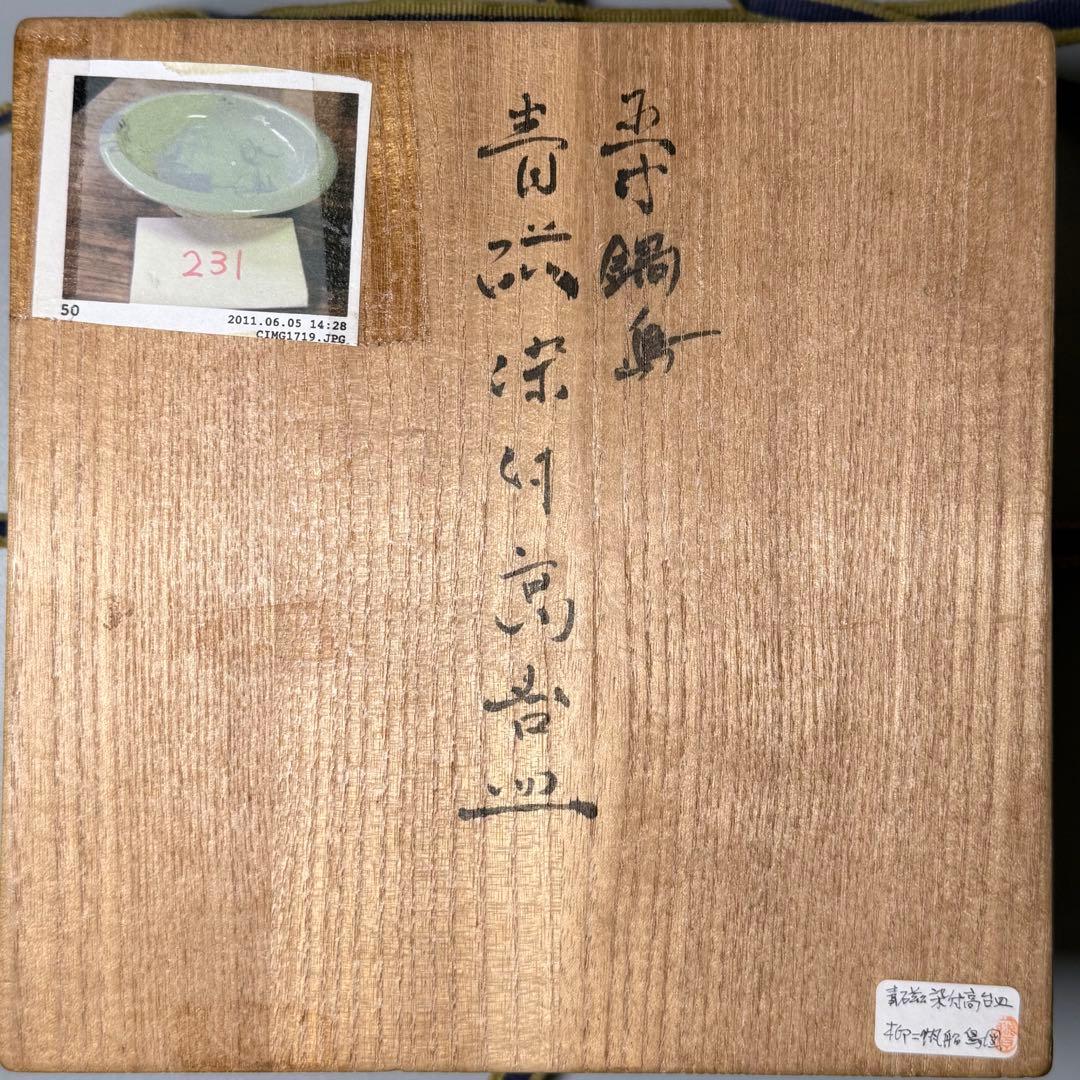 五寸鍋島
青磁染付高台皿
231
50
2011.06.05 14:28
CIMG1719.JPG
青磁染付高台皿
柳ニ帆船鳥図